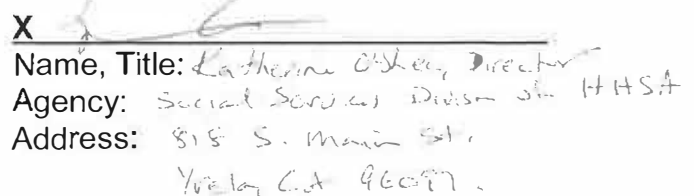 X
Name, Title: Katherine O'Shea, Director
Agency: Social Services Division of HHSA
Address: 818 S. Main St.
Yreka, CA 96097.